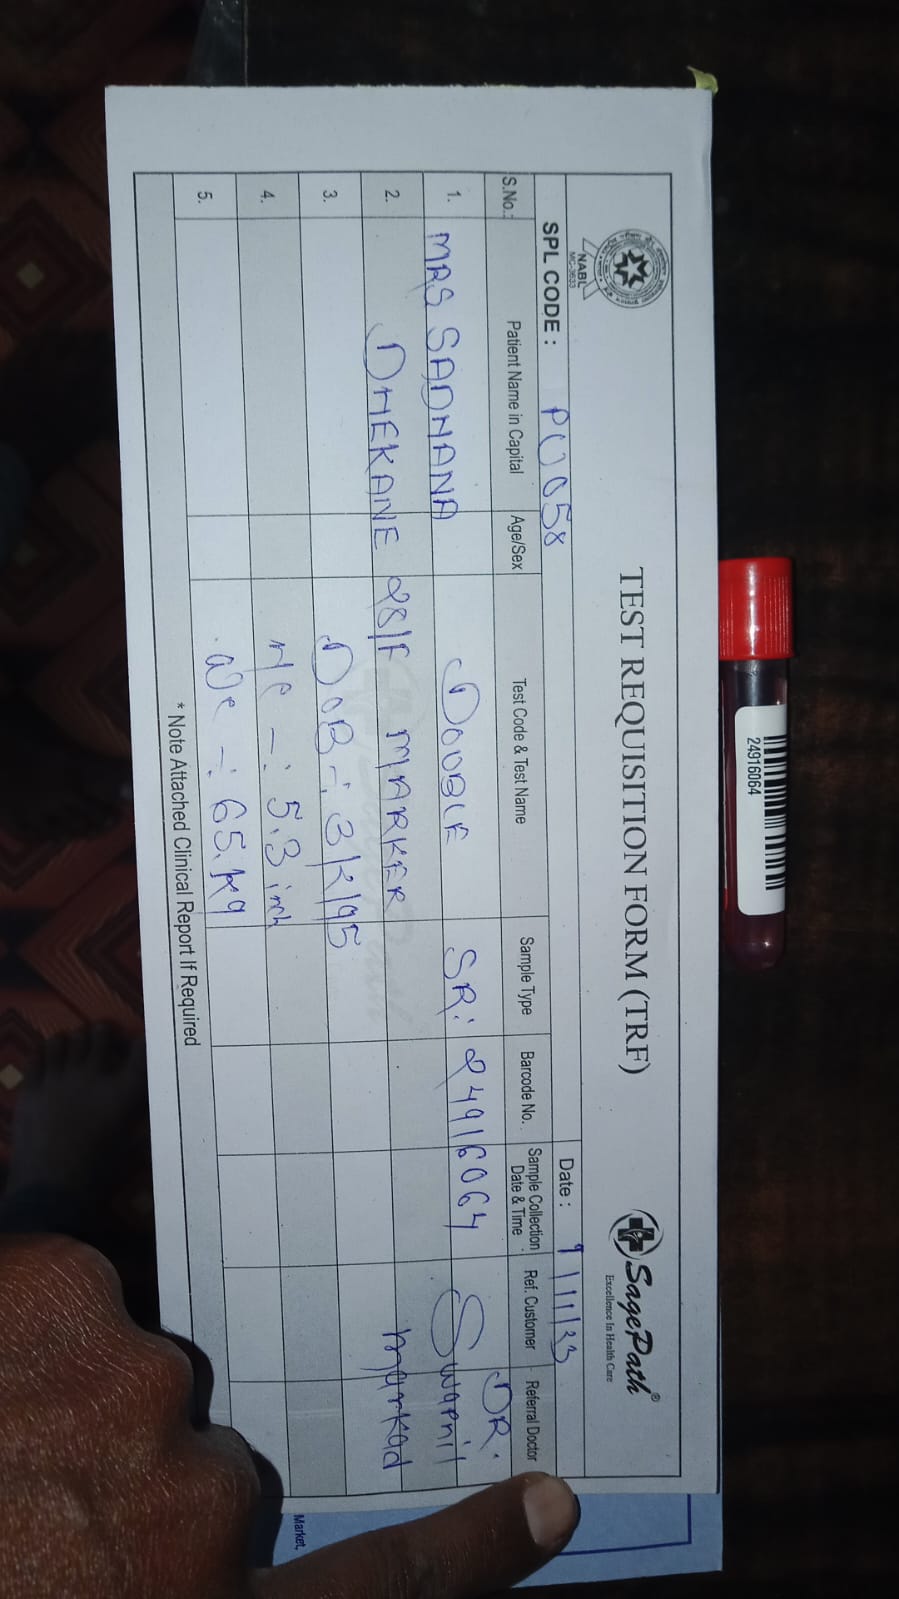 TEST REQUISITION FORM (TRF)
NABL
MC-3633
SagePath®
Excellence In Health Care
SPL CODE : PU058
Date : 9/11/23
S.No.: Patient Name in Capital Age/Sex Test Code & Test Name Sample Type Barcode No. Sample Collection Date & Time Ref. Customer Referral Doctor
DR.
1. MRS SADHANA DOUBLE SR: 24916064 Swapnil
2. DHEKANE 28/F MARKER markad
3. DOB -: 3/2/95
4. H/C -: 5.3 inch
5. We -: 65.kg
* Note Attached Clinical Report If Required
24916064
Market,